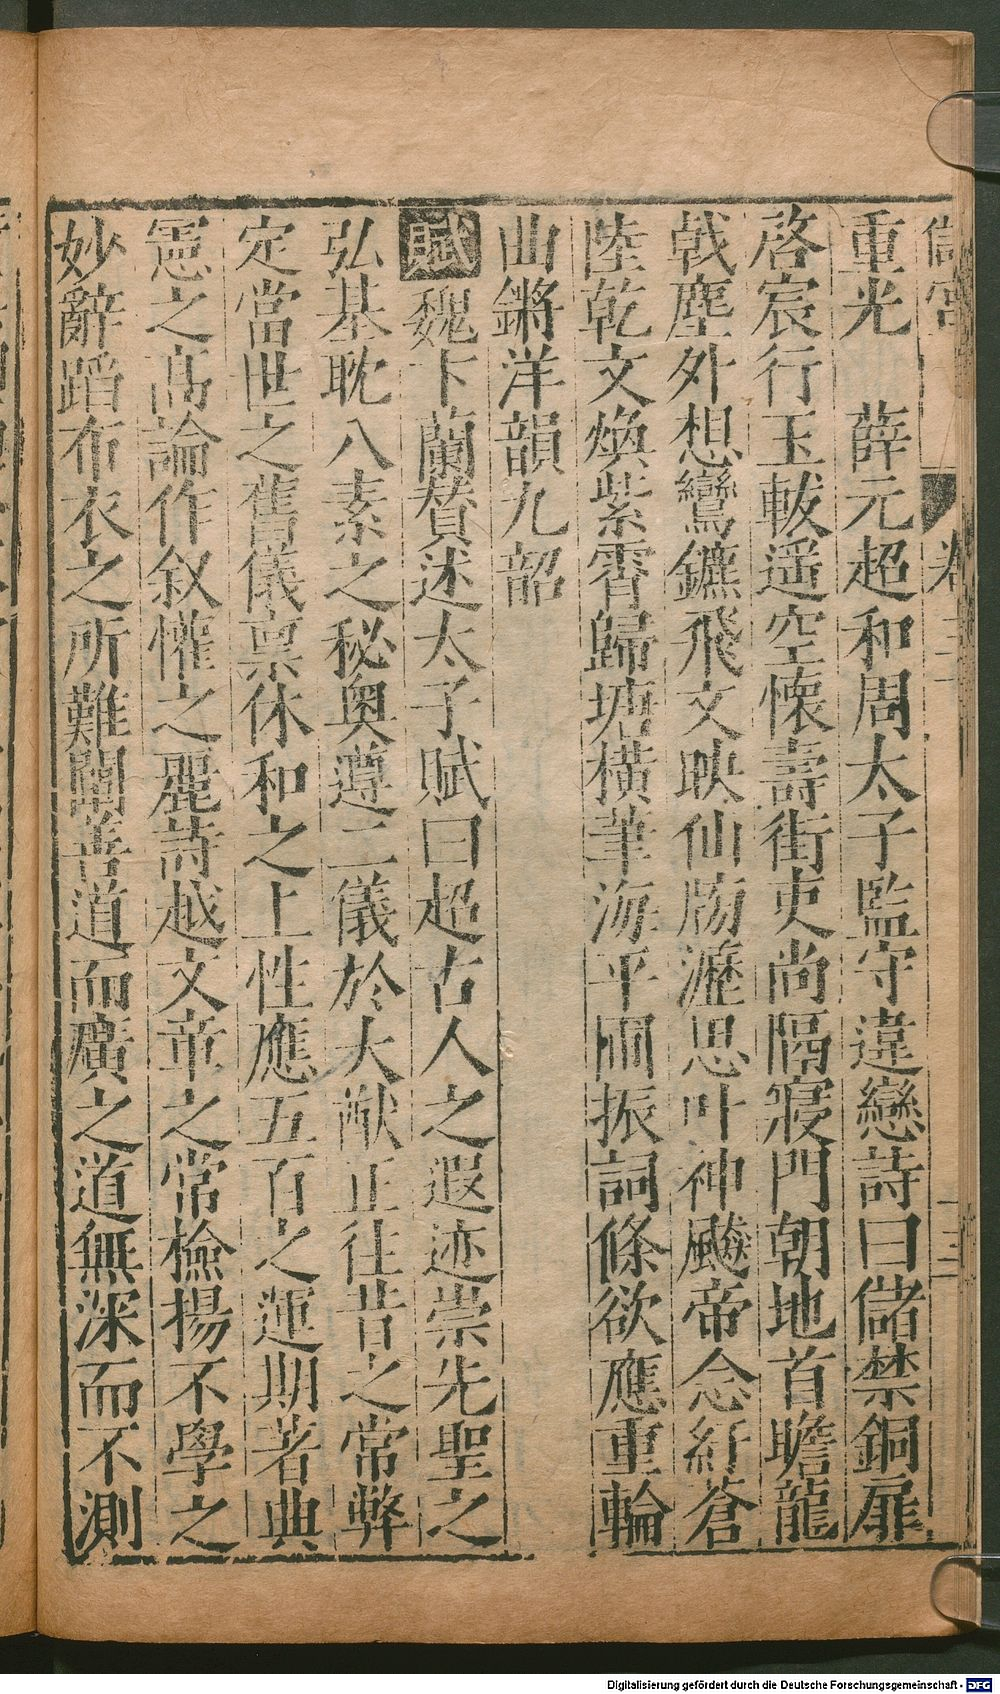 儲宮
卷三
重光　薛元超和周太子監守違戀詩曰儲禁銅扉
啓宸行玉軷遥空懷壽街吏尚隔寢門朝地首瞻龍
戟塵外想鸞鑣飛文映仙牓瀝思叶神飈帝念紆蒼
陸乾文煥紫霄歸塘横筆海平圃振詞條欲應重輪
曲鏘洋韻九韶
賦魏卞蘭賛述太子賦曰超古人之遐迹崇先聖之
弘基耽八素之秘奥遵二儀於大猷正往昔之常弊
定當世之舊儀禀休和之上性應五百之運期著典
憲之髙論作叙懽之麗詩越文章之常檢揚不學之
妙辭蹈布衣之所難闡善道而廣之道無深而不測
Digitalisierung gefördert durch die Deutsche Forschungsgemeinschaft - DFG